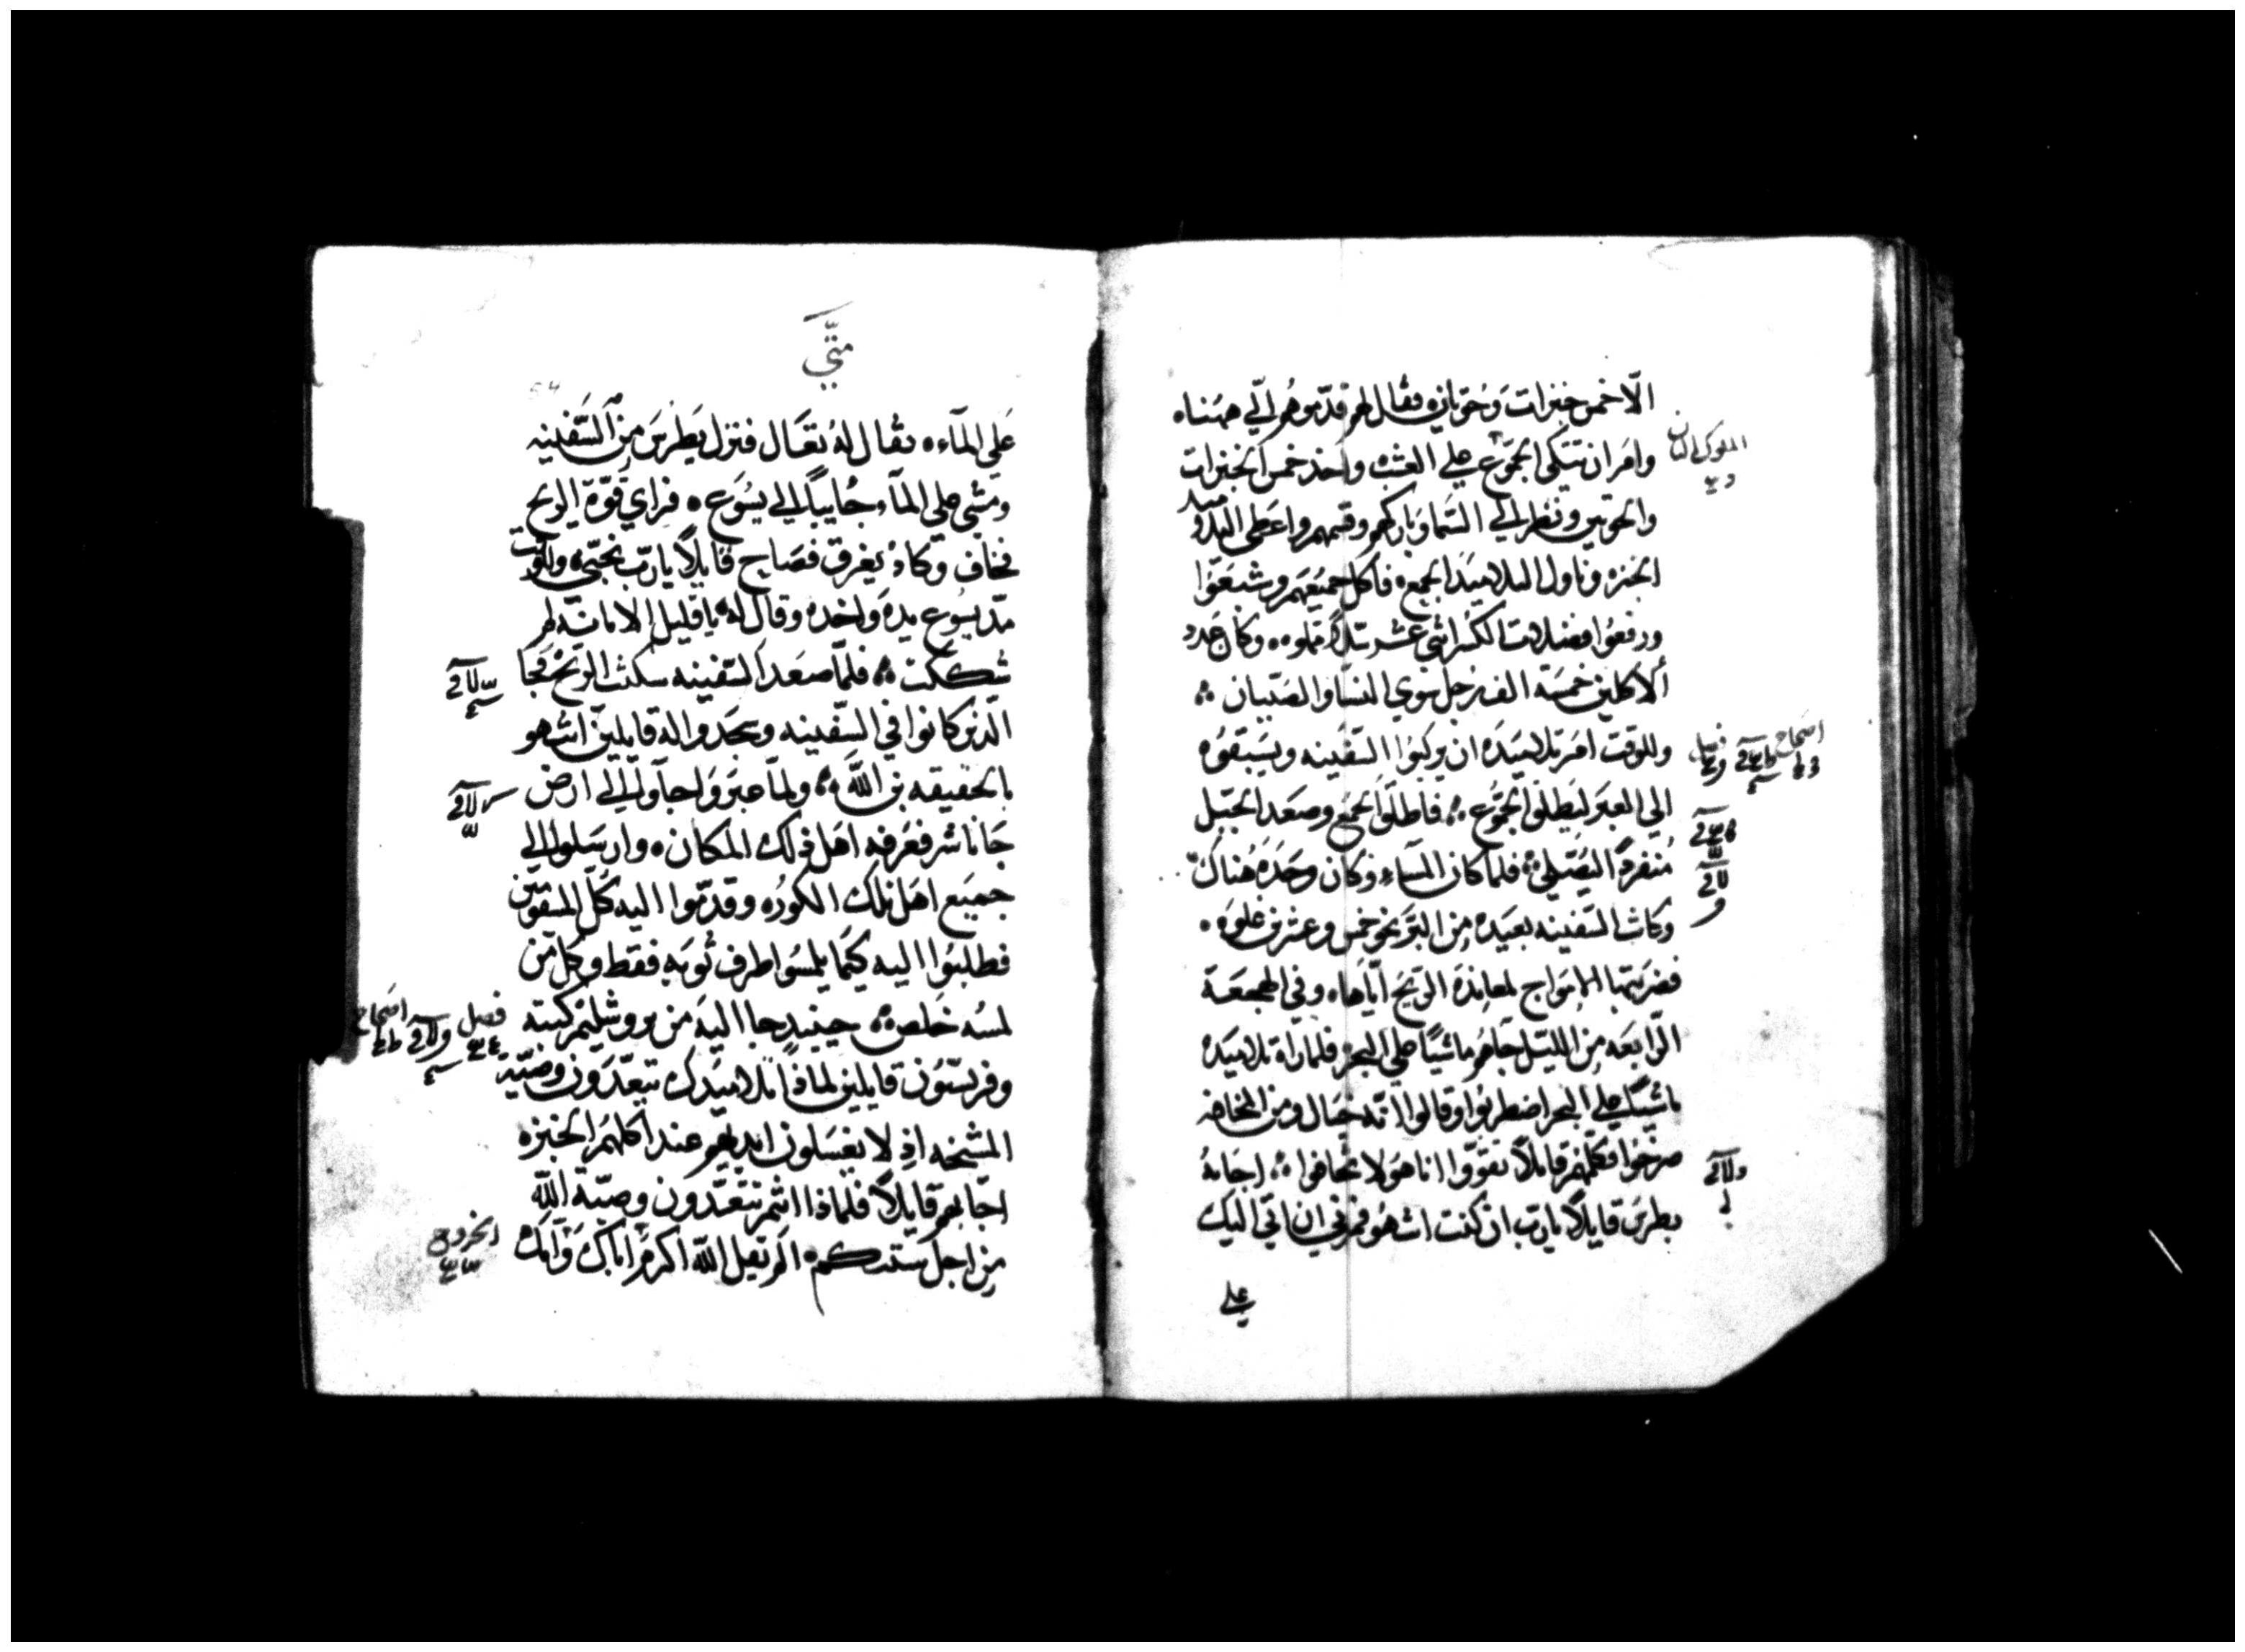 الّا خمس خبزات وحوتان ه فقال لهم قدّموهم اليّ ههنا ه
وامر ان تتكى الجموع على العشب ه واخذ خمس الخبزات
والحوتين ونظر الي السّما وباركهم وقسمهم واعطى التلاميد
الخبز ه وناول التلاميد الجمع ه فاكل جميعهم وشبعوا
ورفعوا فضلات الكسر اثنى عشر سلّا مملوه ه وكان عدد
الاكلين خمسة الف رجل سوي النسا والصبيان
وللوقت امر تلاميده ان يركبوا السّفينه ويسبقوه
الي العبر ليطلق الجموع فاطلق الجمع وصعد الجبل
منفردًا ليصّلي فلما كان المسآء وكان وحده هناك
وكانت السّفينه بعيده من البرّ نحو خمس وعشرين غلوه ه
فضربتها الامواج لمعاندة الريح ايّاها ه وفي الهجعة
الرّابعه من الليل جاهم ماشيًا على البحر ه فلما راه تلاميده
ماشيًا على البحر اضطربوا وقالوا انّه خيال ومن المخافه
صرخوا فكلّمهم قايلًا تقوّوا انا هو لا تخافوا اجابه
بطرس قايلًا يارب ان كنت انت هو فمرني ان اتي اليك
على
فصل
اصحاح
متّي
علي المآء ه فقال له تعال فنزل بطرس من السّفينه
ومشي على المآء جاييًا الي يسوع ه فراي قوّة الريح
فخاف وكاد يغرق فصاح قايلًا يارب نجّني ه وللوقت
مدّ يسوع يده واخده وقال له يا قليل الامانه لم
شككت فلمّا صعد السّفينه سكنت الريح فجا
الّدين كانوا في السّفينه وسجدوا له قايلين انت هو
بالحقيقه بن اللّه ولمّا عبروا جآوا الي ارض
جاناشر فعرفه اهل ذلك المكان ه وارسلوا الي
جميع اهل تلك الكوره وقدّموا اليه كل المسقومين
فطلبوا اليه كيما يلمسوا طرف ثوبه فقط وكل من
لمسه خلص حينيد جا اليه من يروشليم كتبه
وفريسّون قايلين لماذا تلاميدك يتعدّون وصيّة
المشيخه اذ لا يغسلون ايديهم عند اكلهم الخبز ه
اجابهم قايلًا فلماذا انتم تتعدّون وصيّة اللّه
من اجل سنتكم ه الم تقل اللّه اكرم اباك وامّك
فصل
اصحاح
الخروج